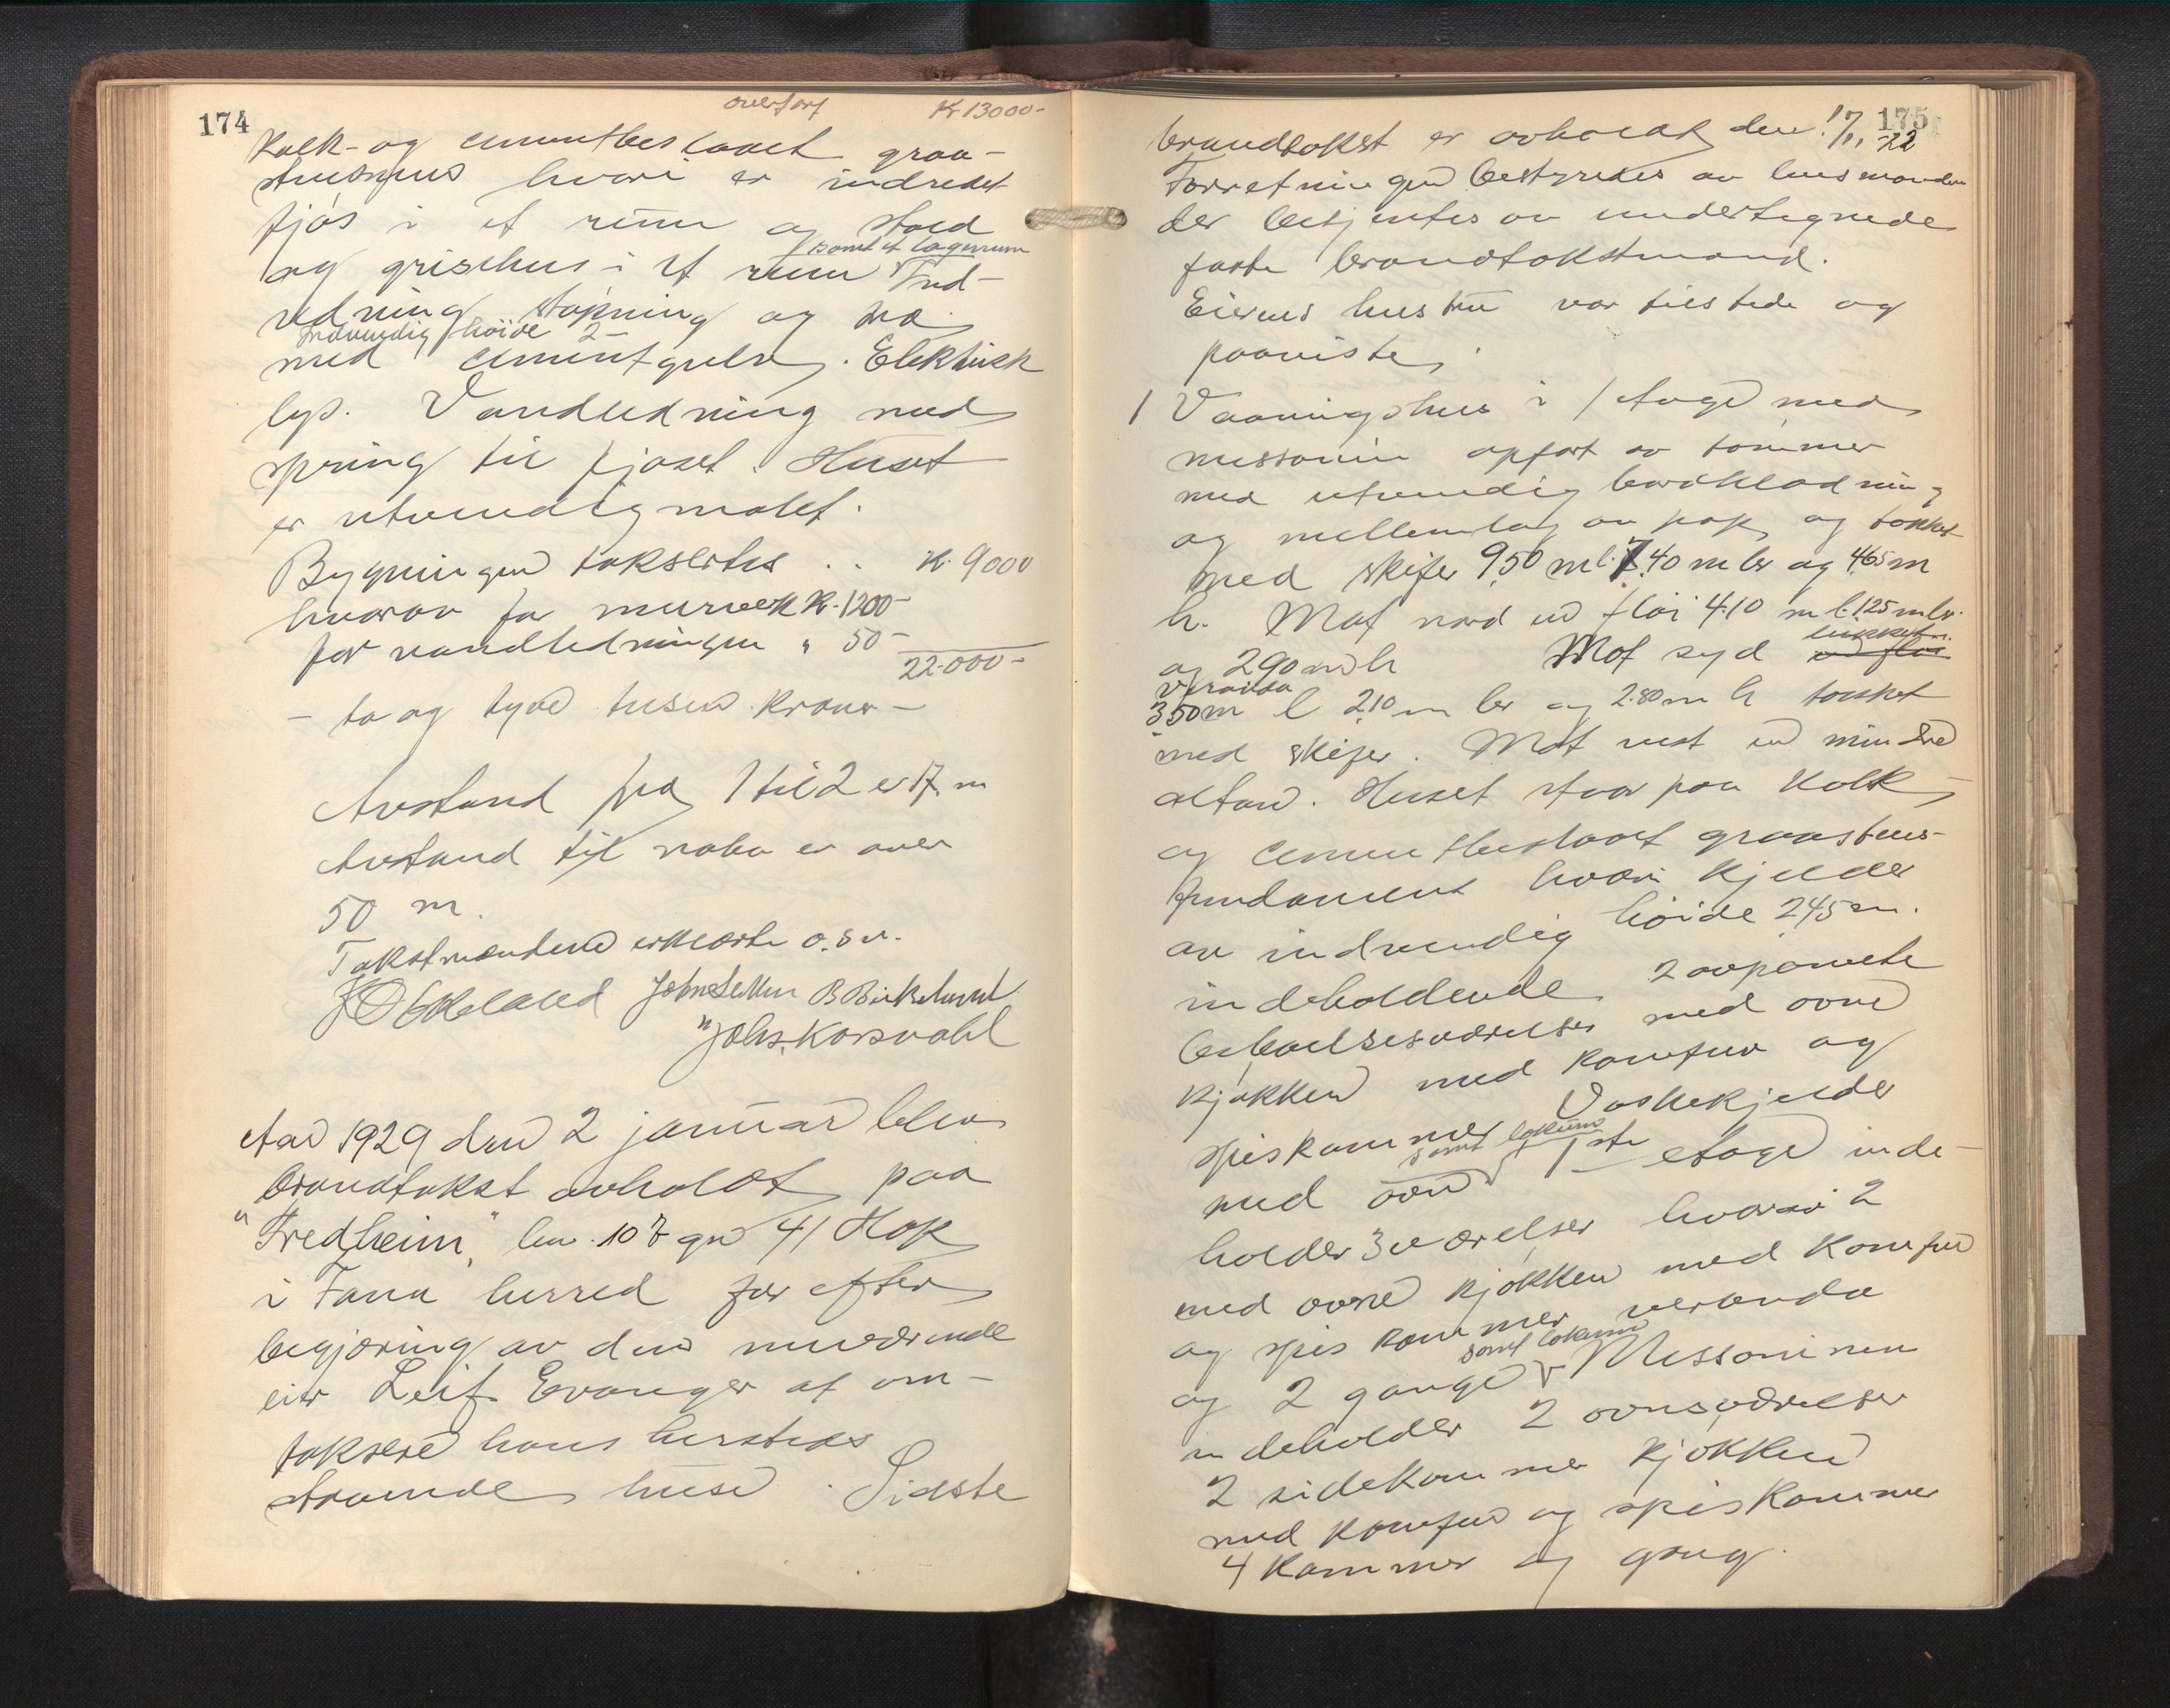 174
overført Kr 13000-
Kalk- og cementbeslaaet graa-
stensmur hvori er indredet
fjøs i et rum og stald
samt et lagerrum
og grisehus i et rum Ind-
redning støpning og træ
Indvendig høide 2
med cementgulv. Elektrisk
lys. Vandledning med
spring til fjøset. Huset
er utvendig malet.
Bygningen takseres . . Kr. 9000
hvorav for murverk Kr. 1200-
for vandledningen " 50-
22.000-
- to og tyve tusen Kroner -
Avstand fra 1 til 2 er 17 m
Avstand til nabo er over
50 m.
Takstmændene erklærte o.s.v.
John B Birkelund
Johs. Korsvold
Aar 1929 den 2 januar blev
brandtakst avholdt paa
"Fredheim" bn. 107 gn 41 Hop
i Fana herred for efter
begjæring av den nuværende
eier Leif Evanger at om-
taksere hans hersteds
staaende huse. Sidste
175
brandtakst er avholdt den 17/11 22
Forretningen bestyredes av lensmanden
der betjentes av undertegnede
faste brandtakstmænd.
Eierens hustru var tilstede og
paaviste,
1 Vaaningshus i 1 etage med
messanin opført av tømmer
med utvendig bordklædning
og mellemlag av pap og tækket
med skifer 9.50 m l. 7.40 m br og 4.65 m
h. Mot nord en fløi 4.10 m l. 1.25 m br.
og 2.90 m h Mot syd lukket
veranda
3.50 m l 2.10 m br og 2.80 m h tækket
med skifer. Mot vest en mindre
altan. Huset staar paa Kalk-
og cementbeslaaet graastens-
fundament hvori kjelder
av indvendig høide 2.45 m.
indeholdende 2 avpanelte
beboelsesværelser med ovne
kjøkken med komfur og
spiskammer Vaskekjelder
samt lokum
med ovn 1ste etage inde-
holder 3 værelser hvorav 2
med ovne kjøkken med komfur
og spiskammer veranda
samt lokum
og 2 gange Messaninen
indeholder 2 ovnsværelser
2 sidekammer kjøkken
med komfur og spiskammer
4 kammer og gang.